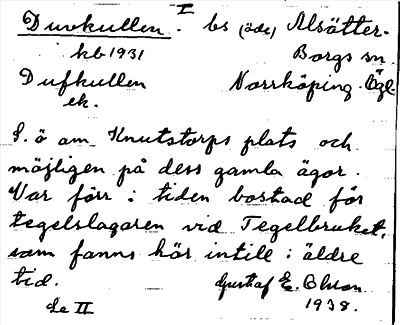 I
Duvkullen. bs (öde) Alsätter.
kb 1931 Borgs sn.
Dufkullen Norrköping. Ögl.
ek.
S. ö om Knutstorps plats och
möjligen på dess gamla ägor.
Var förr i tiden bostad för
tegelslagaren vid Tegelbruket,
som fanns här intill i äldre
tid. Gustaf E. Olson
Se II 1938.